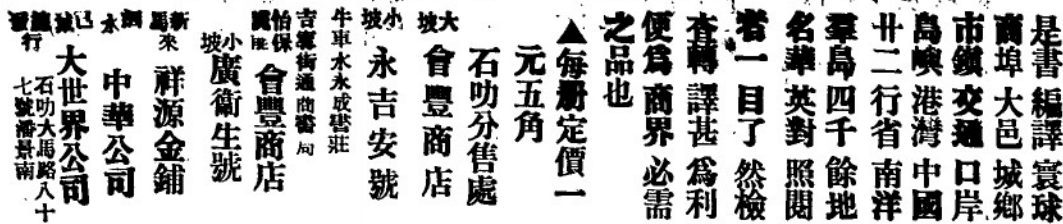 是書編譯寰球
商埠大邑城鄉
市鎭交通口岸
島嶼港灣中國
廿二行省南洋
羣島四千餘地
名華英對照閱
者一目了然檢
查轉譯甚爲利
便爲商界必需
之品也
▲每册定價一
元五角
石叻分售處
大坡會豐商店
小坡永吉安號
牛車水永成書莊
吉寧街通商書局
怡保會豐商店
小坡廣衛生號
新來祥源金鋪
中華公司
大世界公司
行石叻大馬路八十
七號潘景南